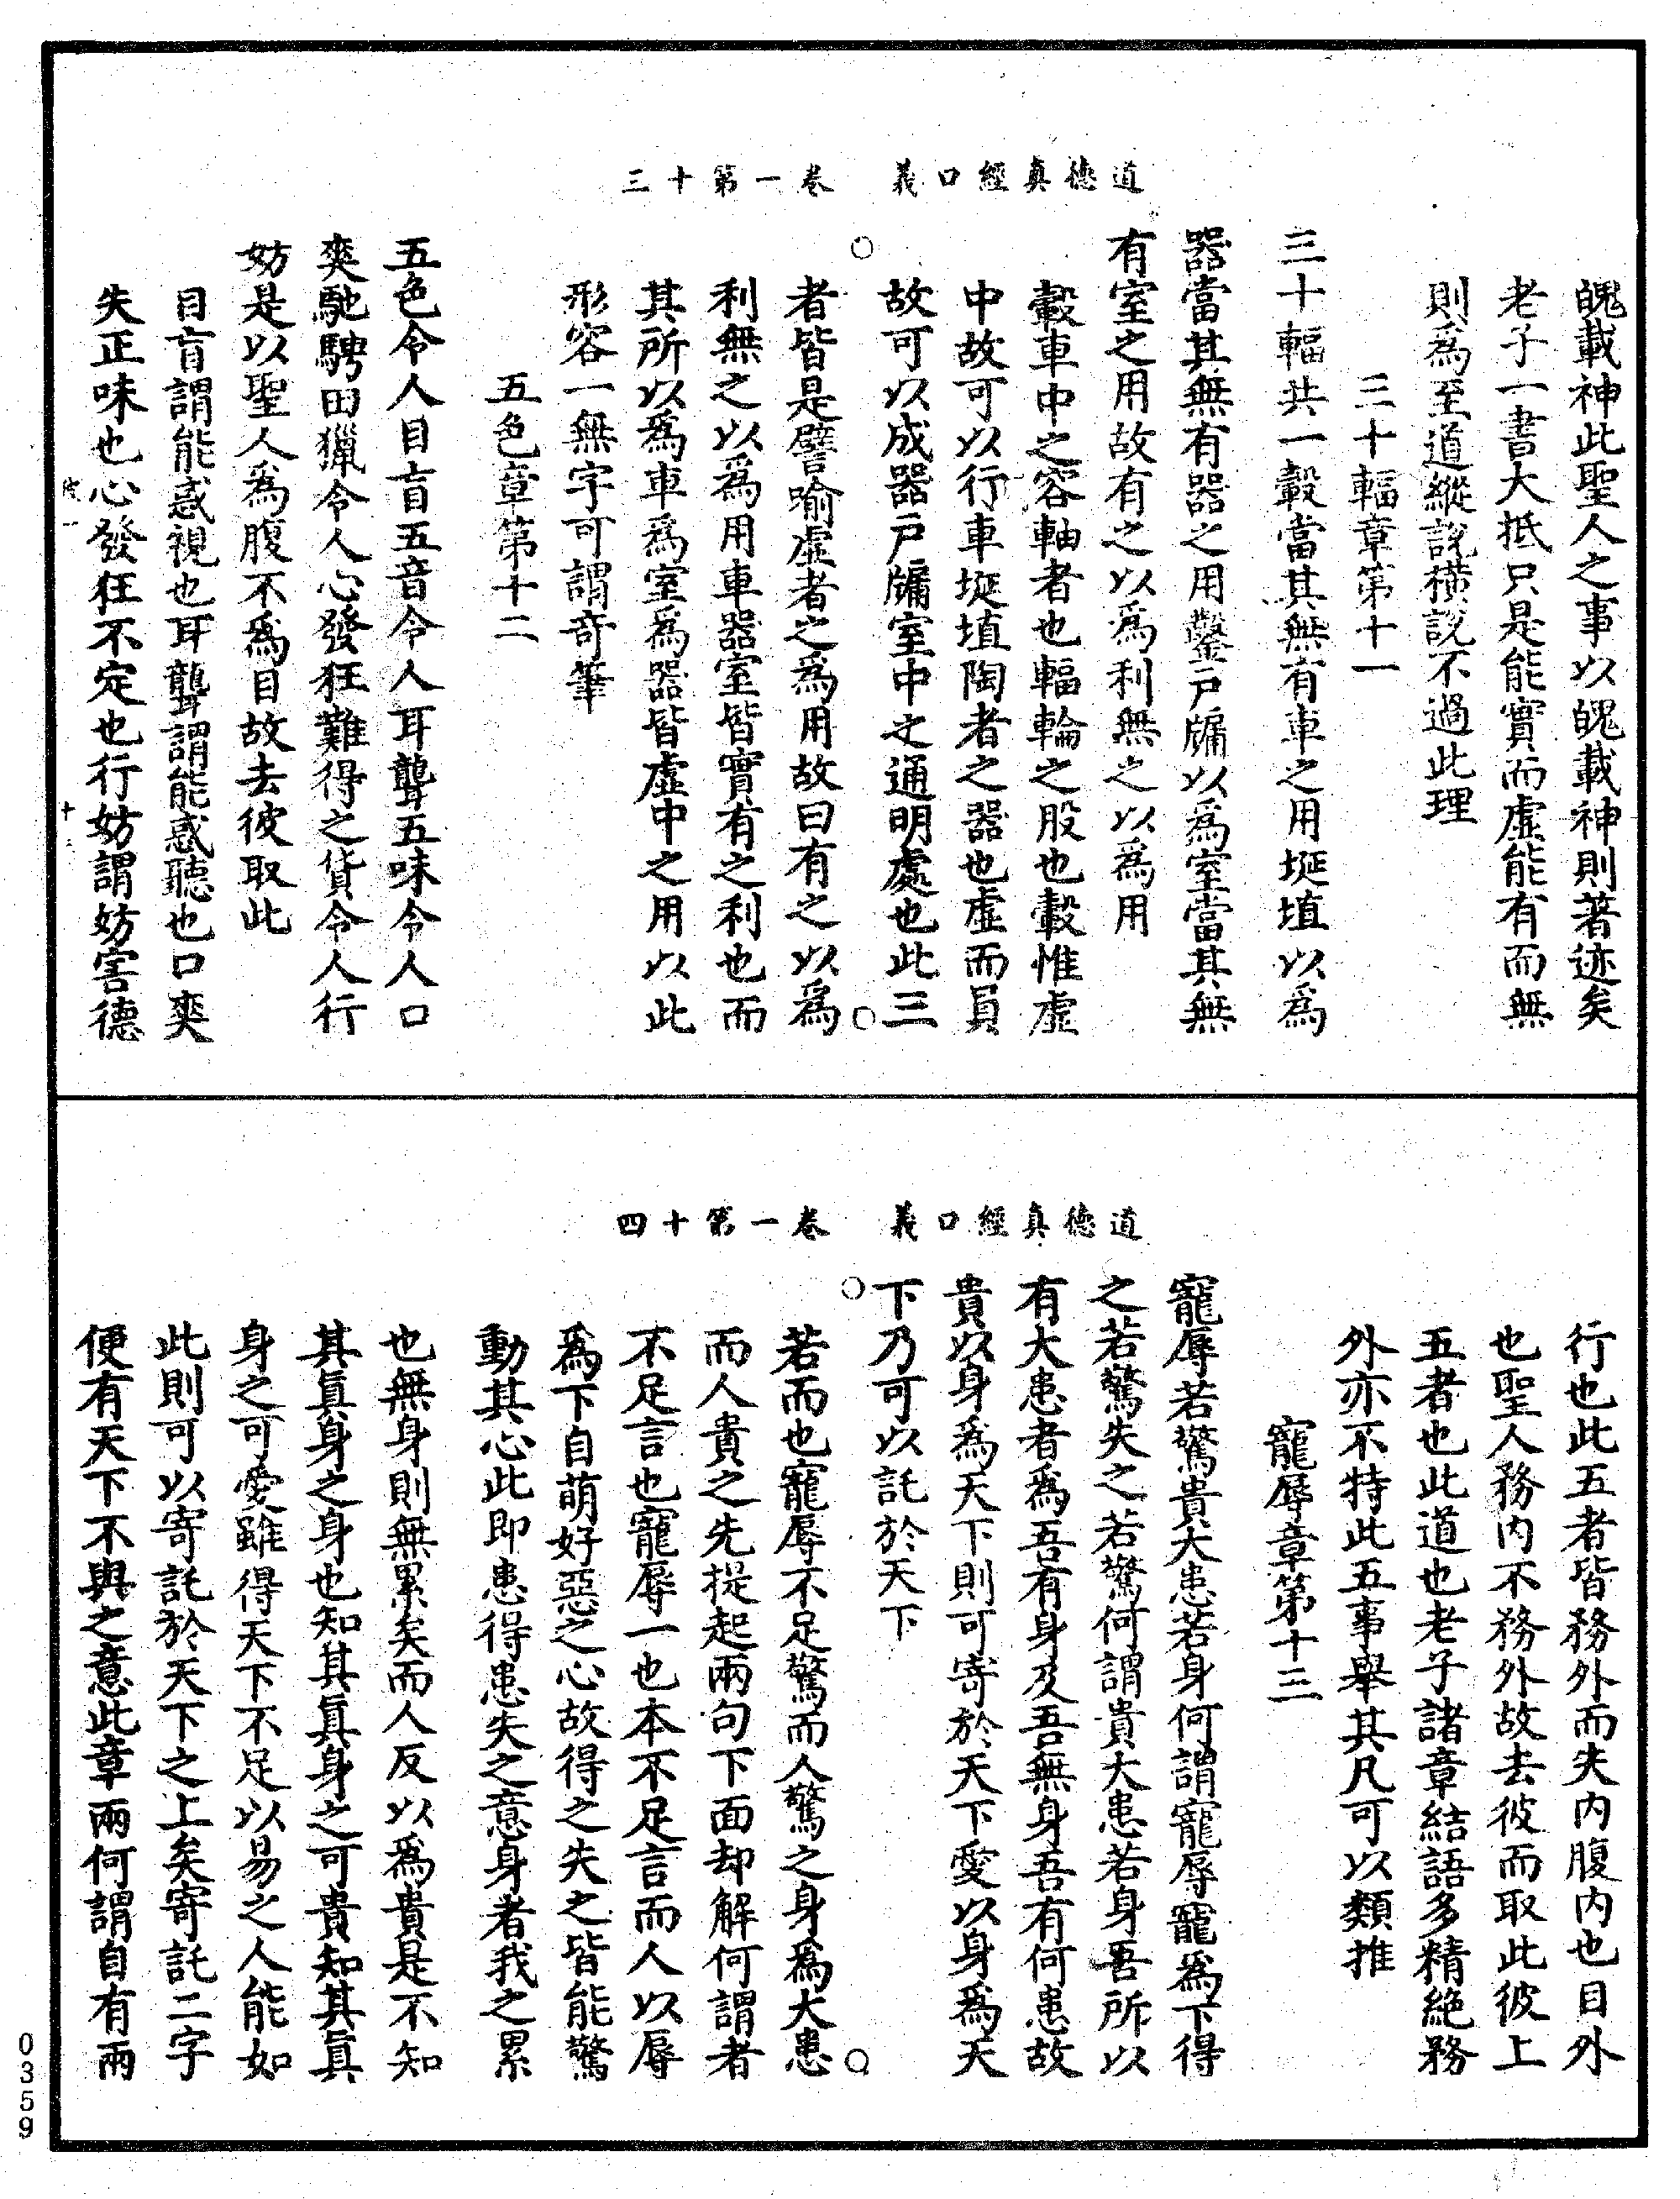 道德真經口義　卷一第十三
魄載神此聖人之事以魄載神則著迹矣
老子一書大抵只是能實而虛能有而無
則爲至道縱說橫說不過此理
三十輻章第十一
三十輻共一轂當其無有車之用埏埴以爲
器當其無有器之用鑿戸牖以爲室當其無
有室之用故有之以爲利無之以爲用
轂車中之容軸者也輻輪之股也轂惟虛
中故可以行車埏埴陶者之器也虛而員
故可以成器戸牖室中之通明處也此三
者皆是譬喻虛者之爲用故曰有之以爲
利無之以爲用車器室皆實有之利也而
其所以爲車爲室爲器皆虛中之用以此
形容一無字可謂奇筆
五色章第十二
五色令人目盲五音令人耳聾五味令人口
爽馳騁田獵令人心發狂難得之貨令人行
妨是以聖人爲腹不爲目故去彼取此
目盲謂能惑視也耳聾謂能惑聽也口爽
失正味也心發狂不定也行妨謂妨害德
道德真經口義　卷一第十四
行也此五者皆務外而失内腹内也目外
也聖人務内不務外故去彼而取此彼上
五者也此道也老子諸章結語多精絕務
外亦不特此五事舉其凡可以類推
寵辱章第十三
寵辱若驚貴大患若身何謂寵辱寵爲下得
之若驚失之若驚何謂貴大患若身吾所以
有大患者爲吾有身及吾無身吾有何患故
貴以身爲天下則可寄於天下愛以身爲天
下乃可以託於天下
若而也寵辱不足驚而人驚之身爲大患
而人貴之先提起兩句下面却解何謂者
不足言也寵辱一也本不足言而人以辱
爲下自萌好惡之心故得之失之皆能驚
動其心此即患得患失之意身者我之累
也無身則無累矣而人反以爲貴是不知
其眞身之身也知其眞身之可貴知其眞
身之可愛雖得天下不足以易之人能如
此則可以寄託於天下之上矣寄託二字
便有天下不與之意此章兩何謂自有兩
0359